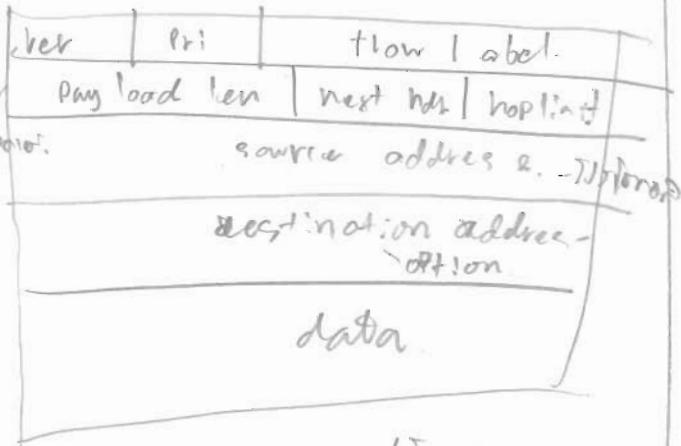 ver pri flow label.
pay load len next hdr hop limit
source addres
destination addres
option
data